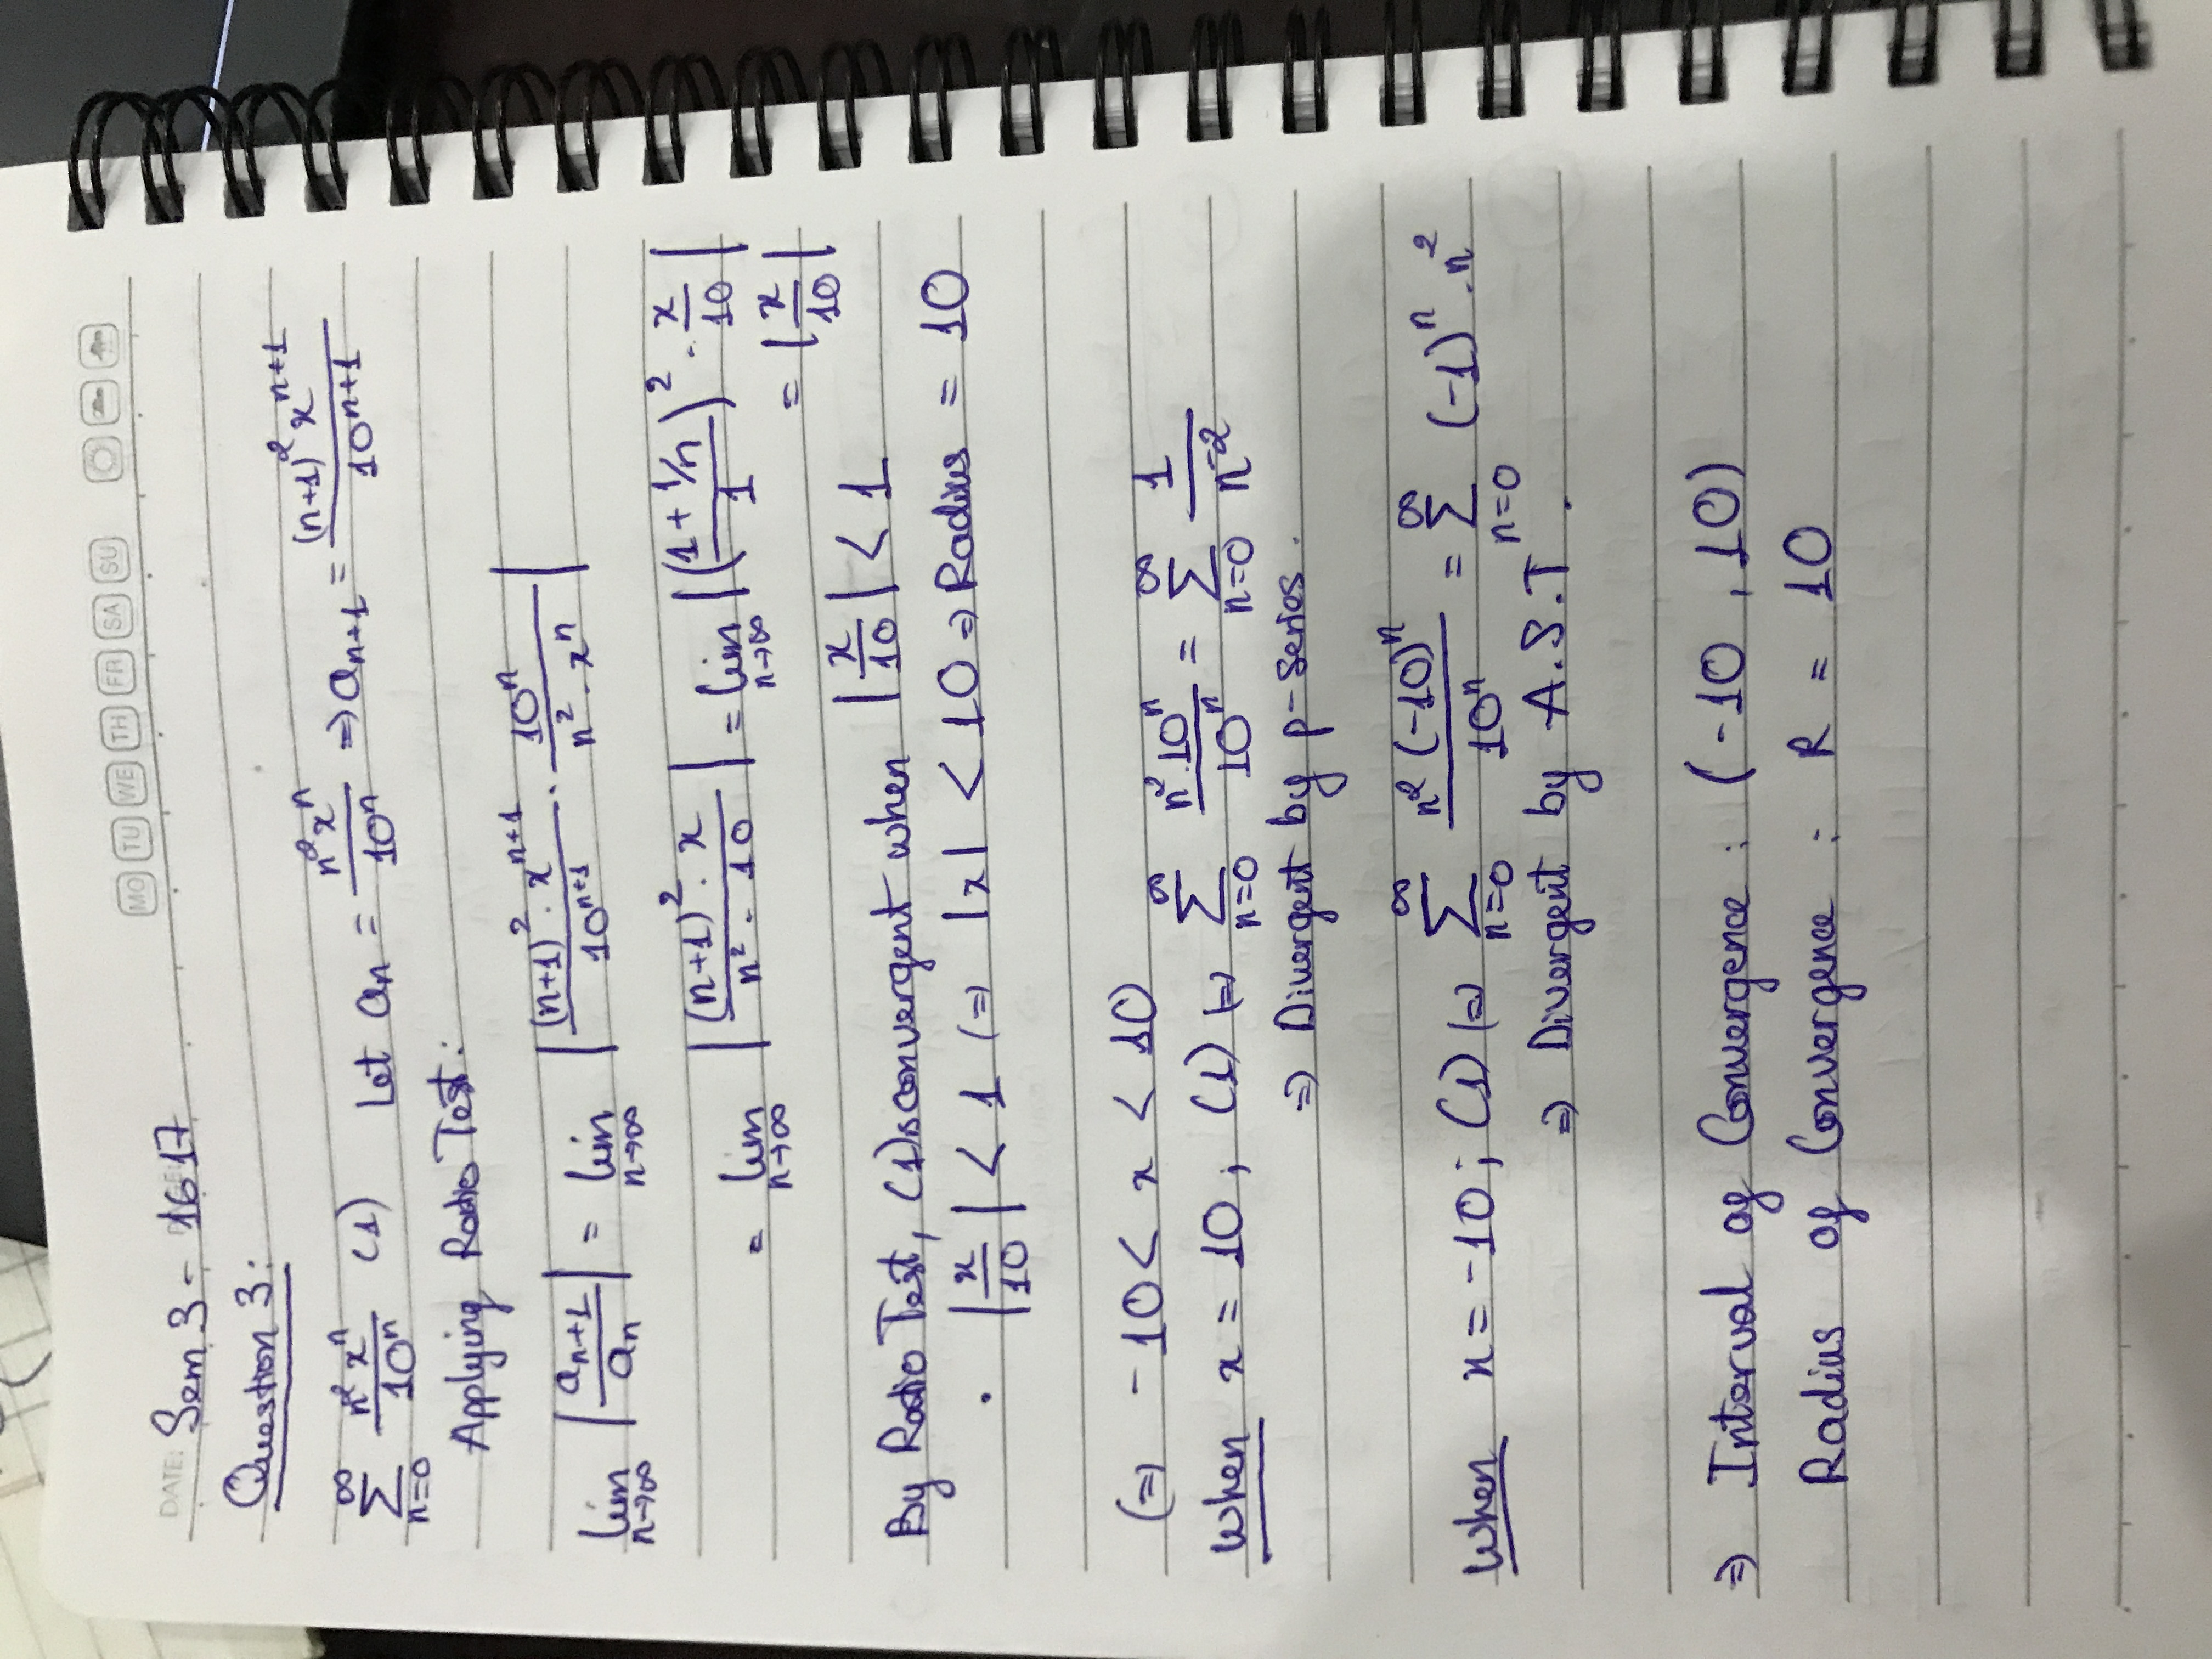 MO TU WE TH FR SA SU
DATE: Sem 3 - 1617
Question 3:
∑_{n=0}^{∞} n² xⁿ / 10ⁿ (1) Let aₙ = n² xⁿ / 10ⁿ ⇒ aₙ₊₁ = (n+1)² xⁿ⁺¹ / 10ⁿ⁺¹
Applying Ratio Test:
lim_{n→∞} | aₙ₊₁ / aₙ | = lim_{n→∞} | (n+1)² · xⁿ⁺¹ / 10ⁿ⁺¹ · 10ⁿ / n² · xⁿ |
= lim_{n→∞} | (n+1)² · x / n² · 10 | = lim_{n→∞} | ( 1 + 1/n / 1 )² · x/10 |
= | x/10 |
By Ratio Test, (1) is convergent when | x/10 | < 1
· | x/10 | < 1 (⇒ |x| < 10 ⇒ Radius = 10
(⇒ -10 < x < 10
When x = 10 ; (1) (⇒ ∑_{n=0}^{∞} n² · 10ⁿ / 10ⁿ = ∑_{n=0}^{∞} 1 / n⁻²
⇒ Divergent by p-series.
When x = -10 ; (1) (⇒ ∑_{n=0}^{∞} n² (-10)ⁿ / 10ⁿ = ∑_{n=0}^{∞} (-1)ⁿ · n²
⇒ Divergent by A.S.T .
⇒ Interval of Convergence : (-10 , 10)
Radius of Convergence : R = 10